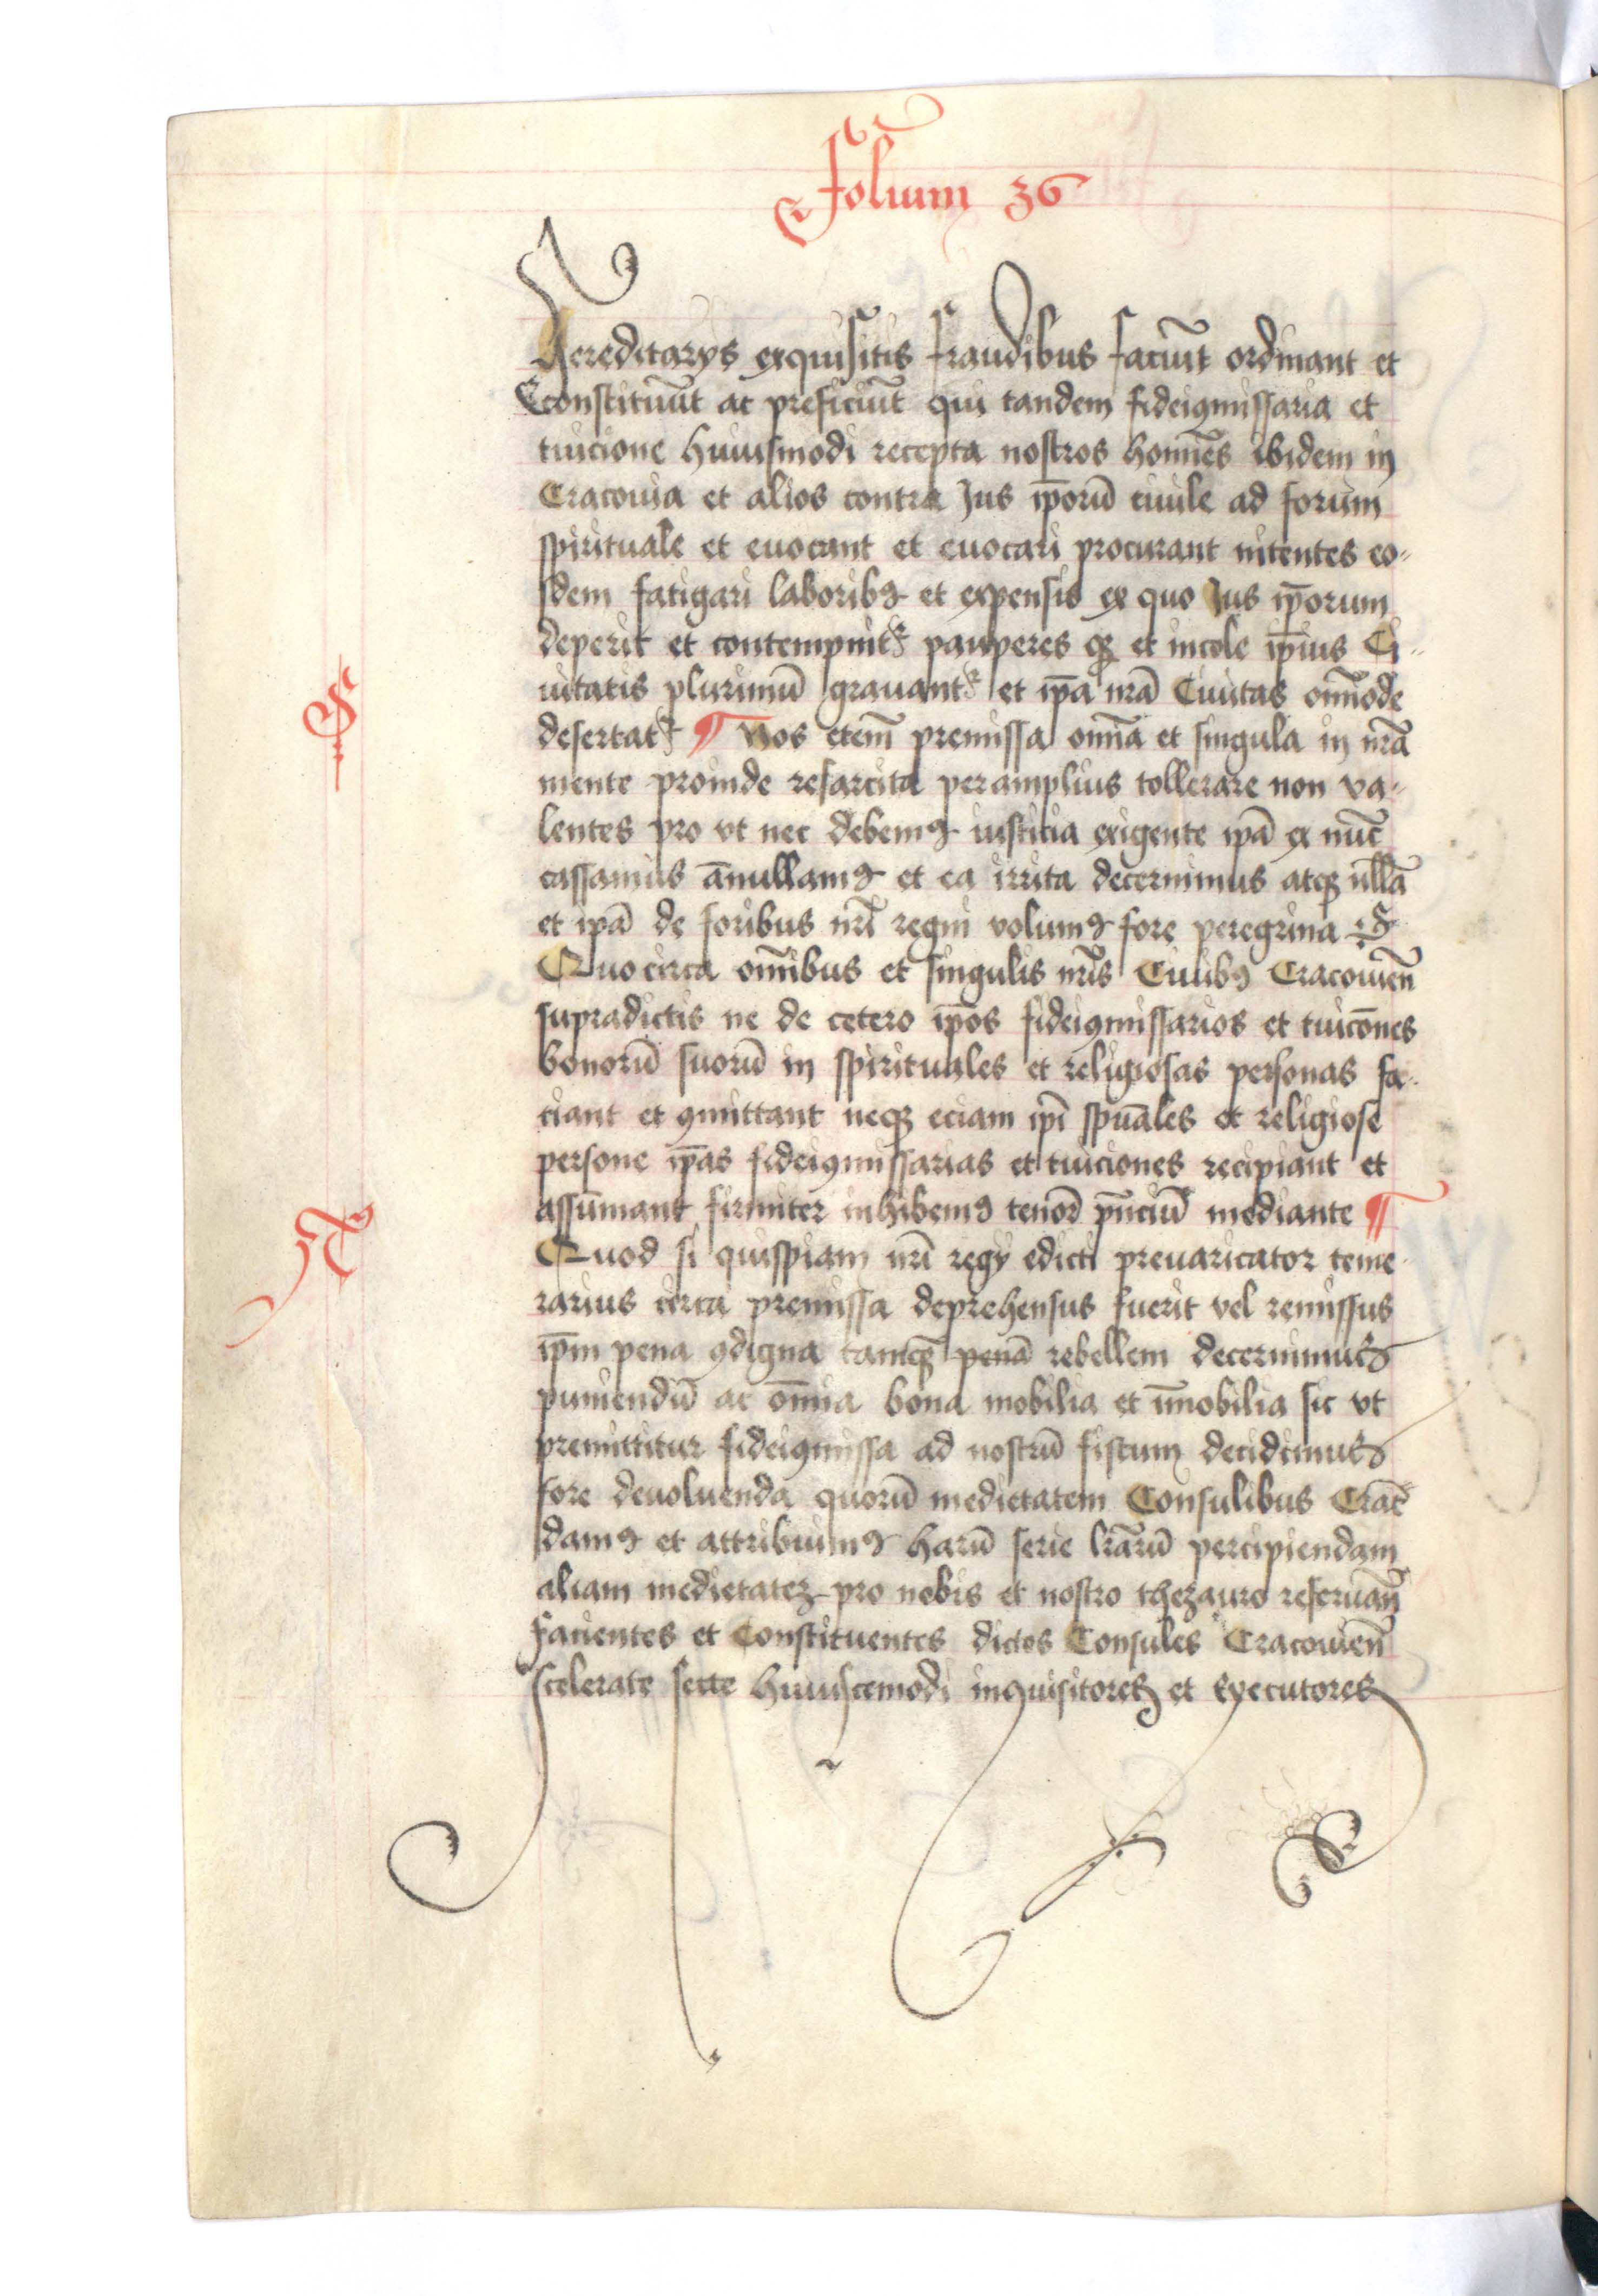 Folium 36
Hereditarys exquisitis fraudibus faciūt ordinant et
Constituūt ac preficiūt qui tandem fideiꝯmissaria et
tuicione huiusmodi recepta nostros homīes ibidem in
Cracouia et alios contra Jus ip̄orū ciuile ad forum
spirituale et euocant et euocari procurant nitentes eo-
sdem fatigari laboribꝰ et expensis ex quo Jus ip̄orum
deperit et contempnitᷣ pauperes qꝫ et incole ip̄ius Ci-
uitatis plurimū grauantᷣ et ip̄a nrā Ciuitas om̄iode
desertatᷣ ¶ Nos eteni̅ premissa om̄ia et singula in nrā
mente proinde resarcita peramplius tollerare non va-
lentes pro vt nec debemꝰ iusticia exigente ip̄ā ex nūc
cassamus an̄ullamꝰ et ea irrita decernimus atqꝫ nulla̅
et ip̄ā de foribus nrī regni volumꝰ fore peregrina
Quocirca om̄ibus et singulis nrīs Ciuibꝰ Cracouien̄
supradictis ne de cetero ip̄os fideiꝯmissarios et tuicōnes
bonorū suorū in spirituales et religiosas personas fa-
ciant et ꝯmittant neqꝫ eciam ip̄i spūales et religiose
persone ip̄as fideiꝯmissarias et tuiciones recipiant et
assūmant firmiter inhibemꝰ tenorē pn̄ciū mediante ¶
Quod si quispiam nrī regy edicti preuaricator teme-
rarius circa premissa deprehensus fuerit vel remissus
ip̄m pena ꝯdigna tamqꝫ penā rebellem decernimus
puniendū ac om̄ia bona mobilia et im̄obilia sic vt
premittitur fideiꝯmissa ad nostrū fiscum decidimus
fore deuoluenda quorū medietatem Consulibus Crac̄
damꝰ et attribuimꝰ harū serie lrārū percipiendam
aliam medietateꝫ pro nobis et nostro thezauro reseruan̄
facientes et Constituentes dictos Consules Cracouien̄
scelerate secte huiuscemodi inquisitores et Executores